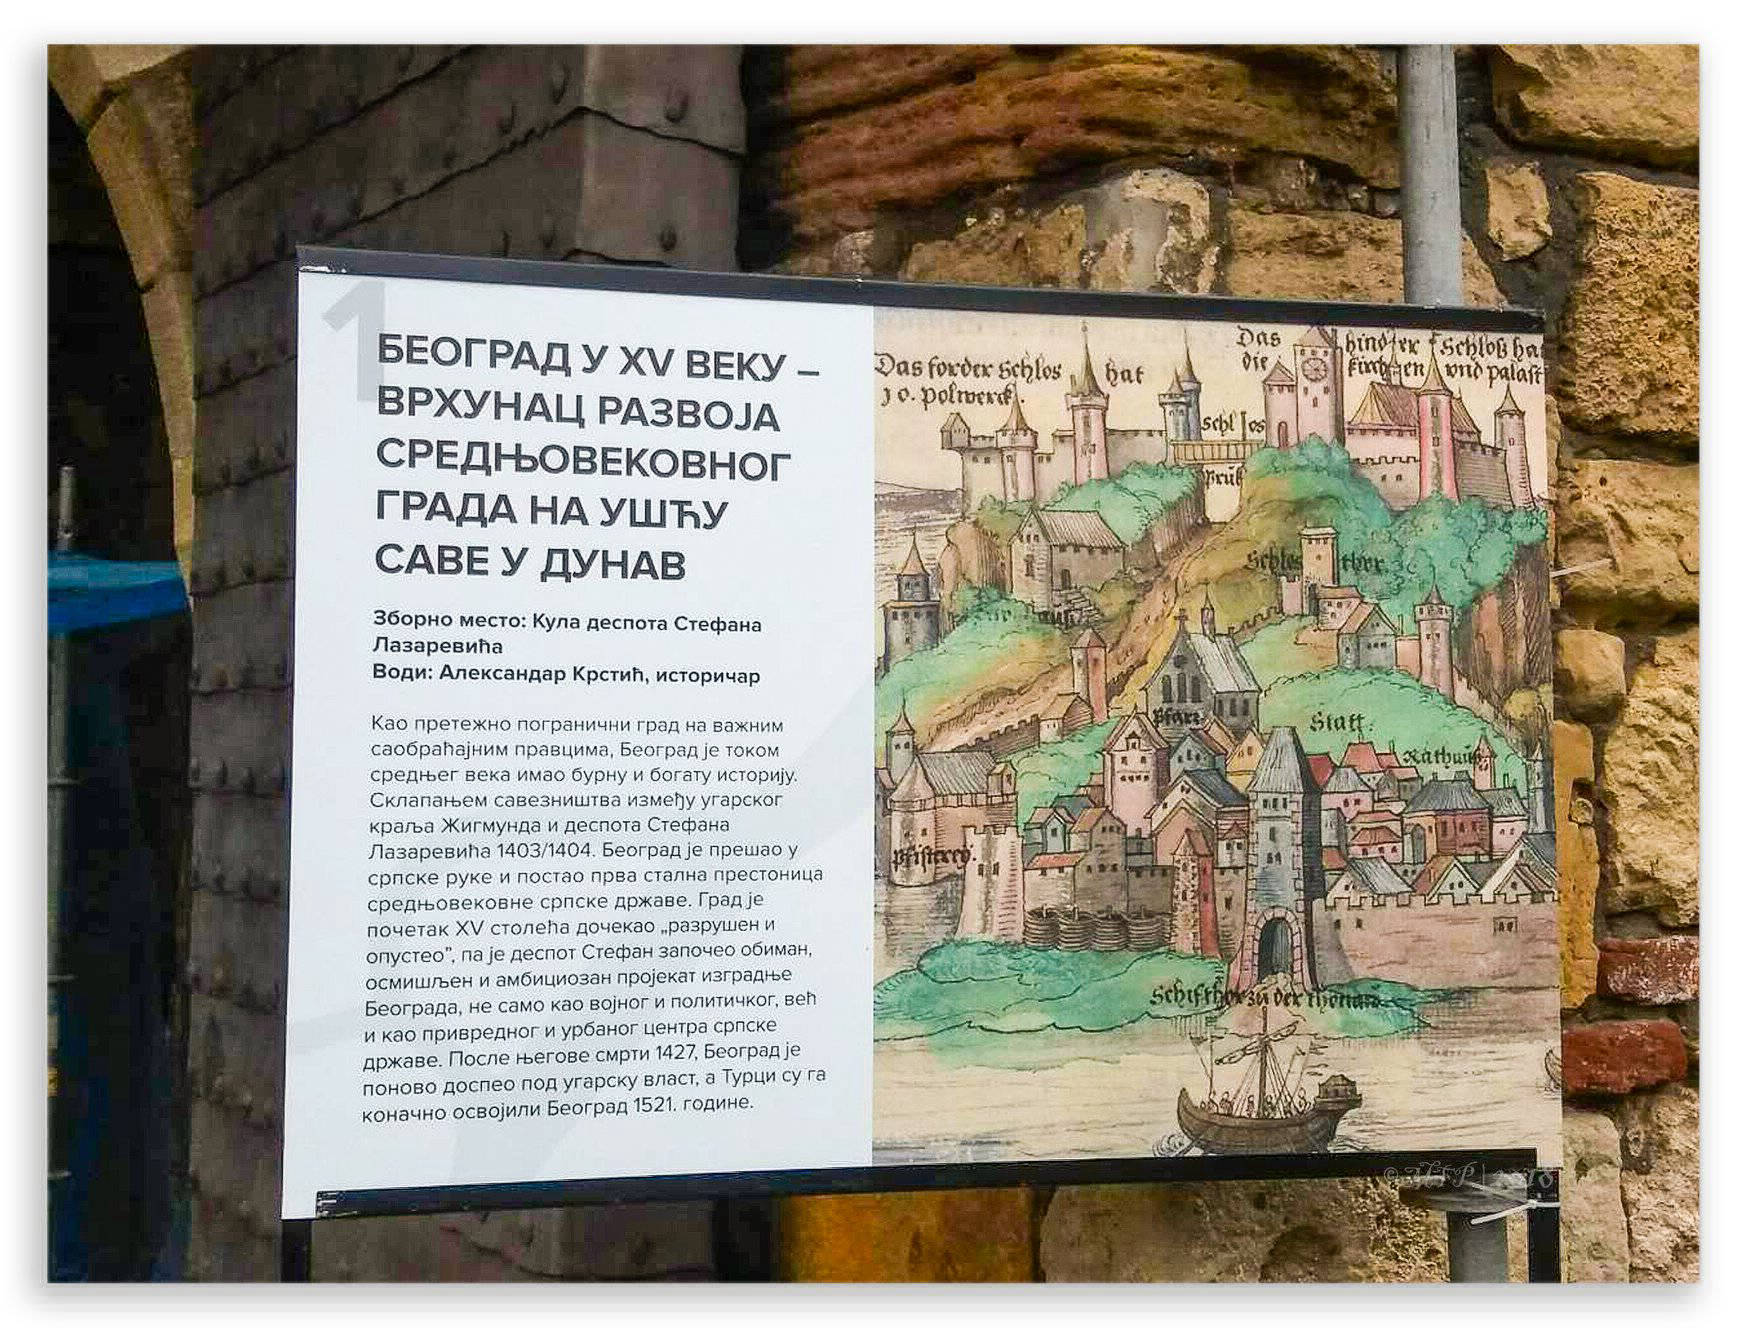 1
БЕОГРАД У XV ВЕКУ –
ВРХУНАЦ РАЗВОЈА
СРЕДЊОВЕКОВНОГ
ГРАДА НА УШЋУ
САВЕ У ДУНАВ
Зборно место: Кула деспота Стефана
Лазаревића
Води: Александар Крстић, историчар
Као претежно погранични град на важним
саобраћајним правцима, Београд је током
средњег века имао бурну и богату историју.
Склапањем савезништва између угарског
краља Жигмунда и деспота Стефана
Лазаревића 1403/1404. Београд је прешао у
српске руке и постао прва стална престоница
средњовековне српске државе. Град је
почетак XV столећа дочекао „разрушен и
опустео”, па је деспот Стефан започео обиман,
осмишљен и амбициозан пројекат изградње
Београда, не само као војног и политичког, већ
и као привредног и урбаног центра српске
државе. После његове смрти 1427, Београд је
поново доспео под угарску власт, а Турци су га
коначно освојили Београд 1521. године.
Das forder Schlos hat
10. polwerck.
Das hindter Schloß hat
die kirchen vnd palast
schlos
průk
Schlos thor
Pfarr
Statt.
Rathaus
pfisterey.
Schifthor zu der thonaw
© MFP | 2018